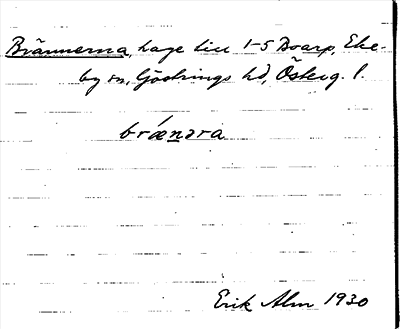 Brännerna, hage till 1-5 Boarp, Eke-
by sn, Göstrings hd, Österg. l.
brǽnəra
Erik Alm 1930